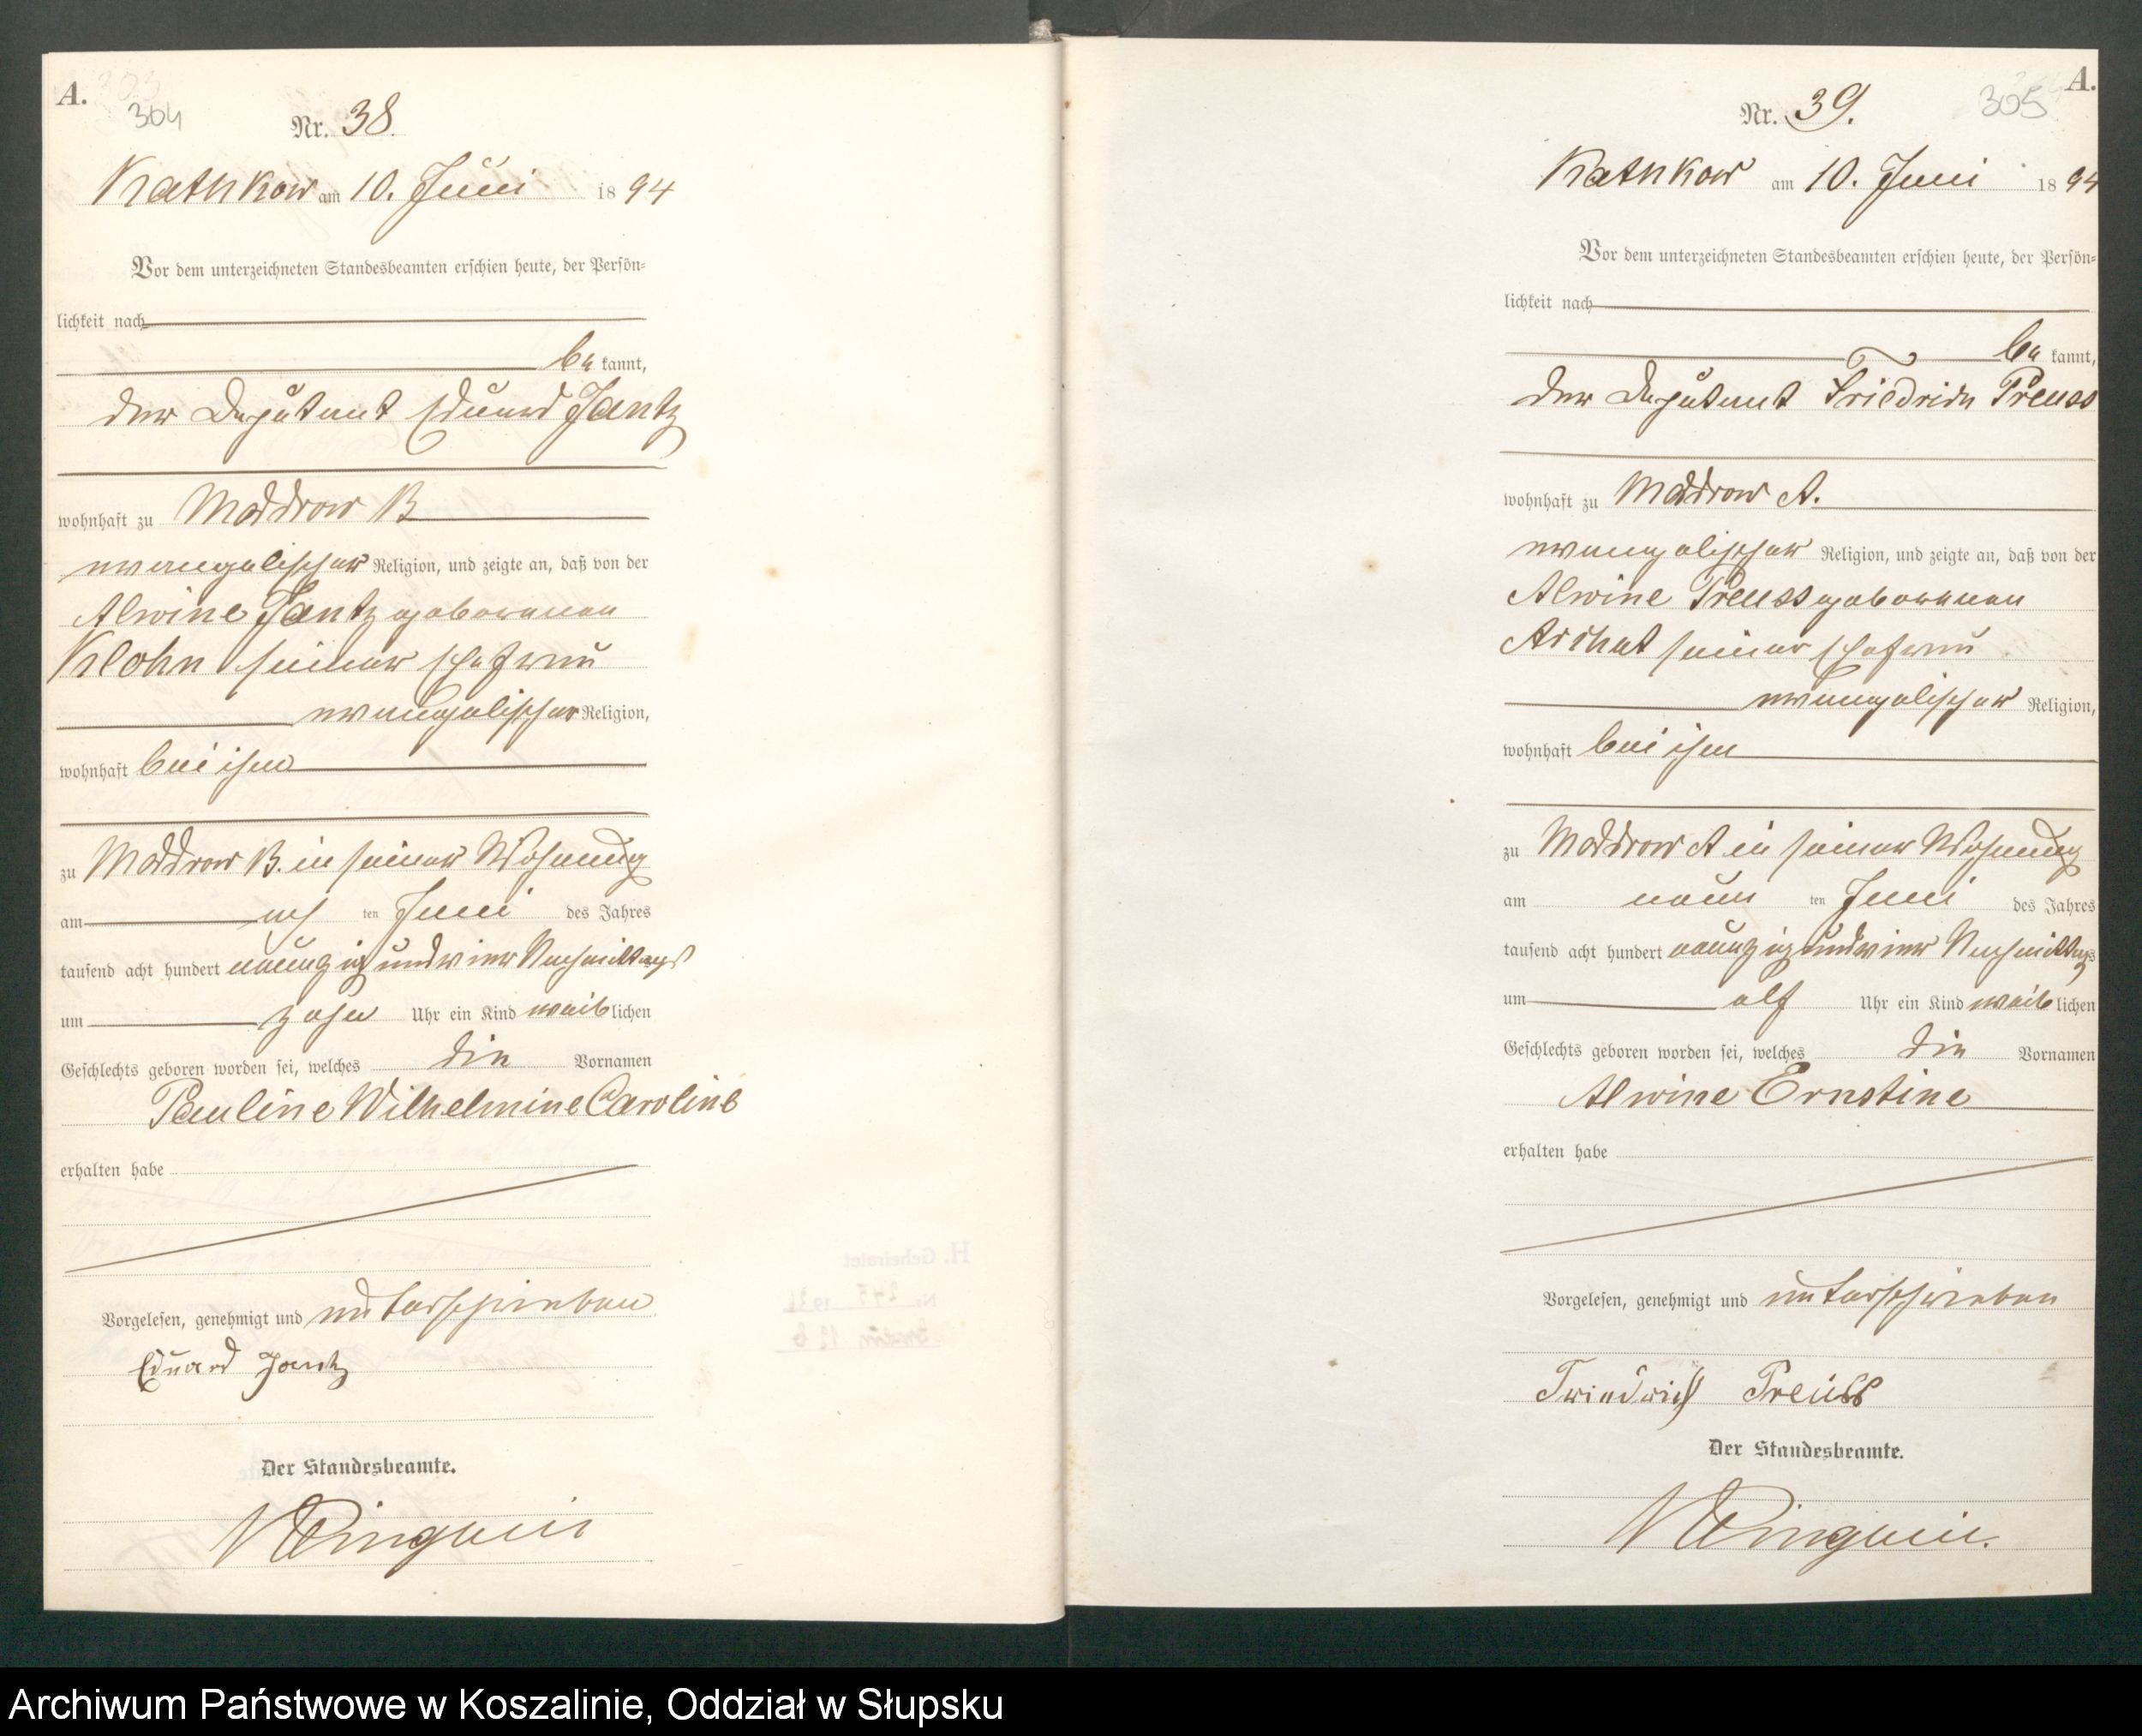 A.
304
Nr. 38.
Rathkow am 10. Juni 1894
Vor dem unterzeichneten Standesbeamten erschien heute, der Persön-
lichkeit nach
bekannt,
der Deputant Eduard Jantz
wohnhaft zu Moddrow B
evangelischer Religion, und zeigte an, daß von der
Alwine Jantz geborenen
Klohn seiner Ehefrau
evangelischer Religion,
wohnhaft bei ihm
zu Moddrow B. in seiner Wohnung
am ach ten Juni des Jahres
tausend acht hundert neunzig und vier Nachmittags
um zehn Uhr ein Kind weiblichen
Geschlechts geboren worden sei, welches die Vornamen
Pauline Wilhelmine Caroline
erhalten habe
Vorgelesen, genehmigt und unterschrieben
Eduard Jantz
Der Standesbeamte.
A.
305
Nr. 39.
Rathkow am 10. Juni 1894
Vor dem unterzeichneten Standesbeamten erschien heute, der Persön-
lichkeit nach
bekannt,
der Deputant Friedrich Preuss
wohnhaft zu Moddrow A.
evangelischer Religion, und zeigte an, daß von der
Alwine Preuss geborenen
seiner Ehefrau
evangelischer Religion,
wohnhaft bei ihm
zu Moddrow A in seiner Wohnung
am neun ten Juni des Jahres
tausend acht hundert neunzig und vier Nachmittags
um elf Uhr ein Kind weiblichen
Geschlechts geboren worden sei, welches die Vornamen
Alwine Ernstine
erhalten habe
Vorgelesen, genehmigt und unterschrieben
Friedrich Preuss
Der Standesbeamte.
Archiwum Państwowe w Koszalinie, Oddział w Słupsku